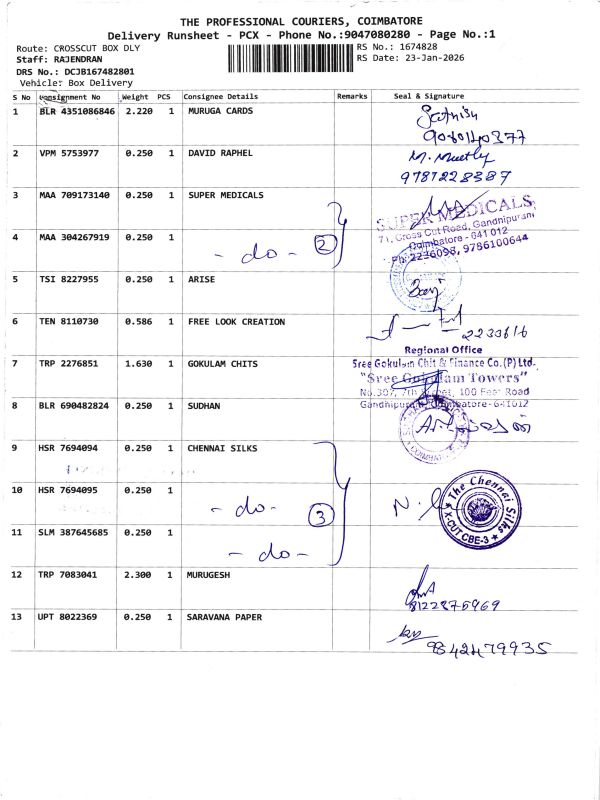 THE PROFESSIONAL COURIERS, COIMBATORE
Delivery Runsheet - PCX - Phone No.:9047080280 - Page No.:1
Route: CROSSCUT BOX DLY
RS No.: 1674828
Staff: RAJENDRAN
RS Date: 23-Jan-2026
DRS No.: DCJB167482801
Vehicle: Box Delivery
S No Consignment No Weight PCS Consignee Details Remarks Seal & Signature
1 BLR 4351086846 2.220 1 MURUGA CARDS
2 VPM 5753977 0.250 1 DAVID RAPHEL
9787228387
3 MAA 709173140 0.250 1 SUPER MEDICALS
SUPER MEDICALS
71, Cross Cut Road, Gandhipuram
Coimbatore - 641 012
Ph: 2236098, 9786100644
4 MAA 304267919 0.250 1 - do - 2
5 TSI 8227955 0.250 1 ARISE
6 TEN 8110730 0.586 1 FREE LOOK CREATION
2233616
Regional Office
7 TRP 2276851 1.630 1 GOKULAM CHITS
Sree Gokulam Chit & Finance Co.(P) Ltd.
"Sree Gokulam Towers"
No.307, 7th Street, 100 Feet Road
Gandhipuram, Coimbatore - 641012
8 BLR 690482824 0.250 1 SUDHAN
9 HSR 7694094 0.250 1 CHENNAI SILKS
10 HSR 7694095 0.250 1 - do - 3
The Chennai Silks
X-CUT CBE-3
11 SLM 387645685 0.250 1 - do -
12 TRP 7083041 2.300 1 MURUGESH
8122875969
13 UPT 8022369 0.250 1 SARAVANA PAPER
9842479935